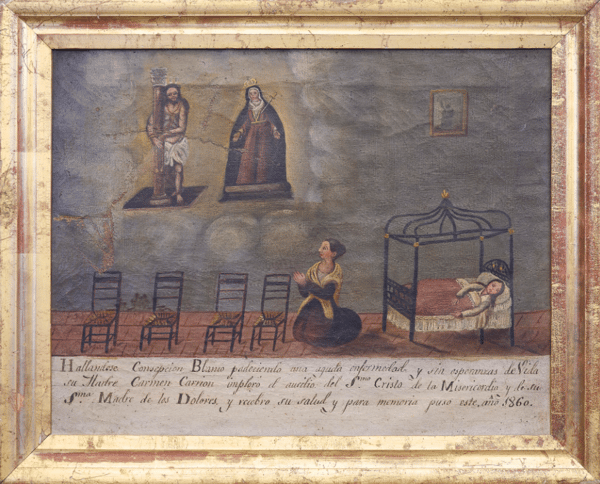 Hallandose Consepcion Blanio padeciendo una aguda enfermedad y sin esperanzas de Vida
su Madre Carmen Carnon imploro el aucilio del S.mo Cristo de la Misericordia y de su
S.ma Madre de los Dolores y recobro su salud y para memoria puso este, año 1860.